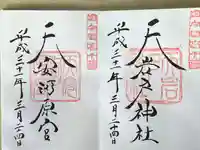 天岩戸神社
平成三十一年三月二四日
天安河原宮
平成三十一年三月二四日